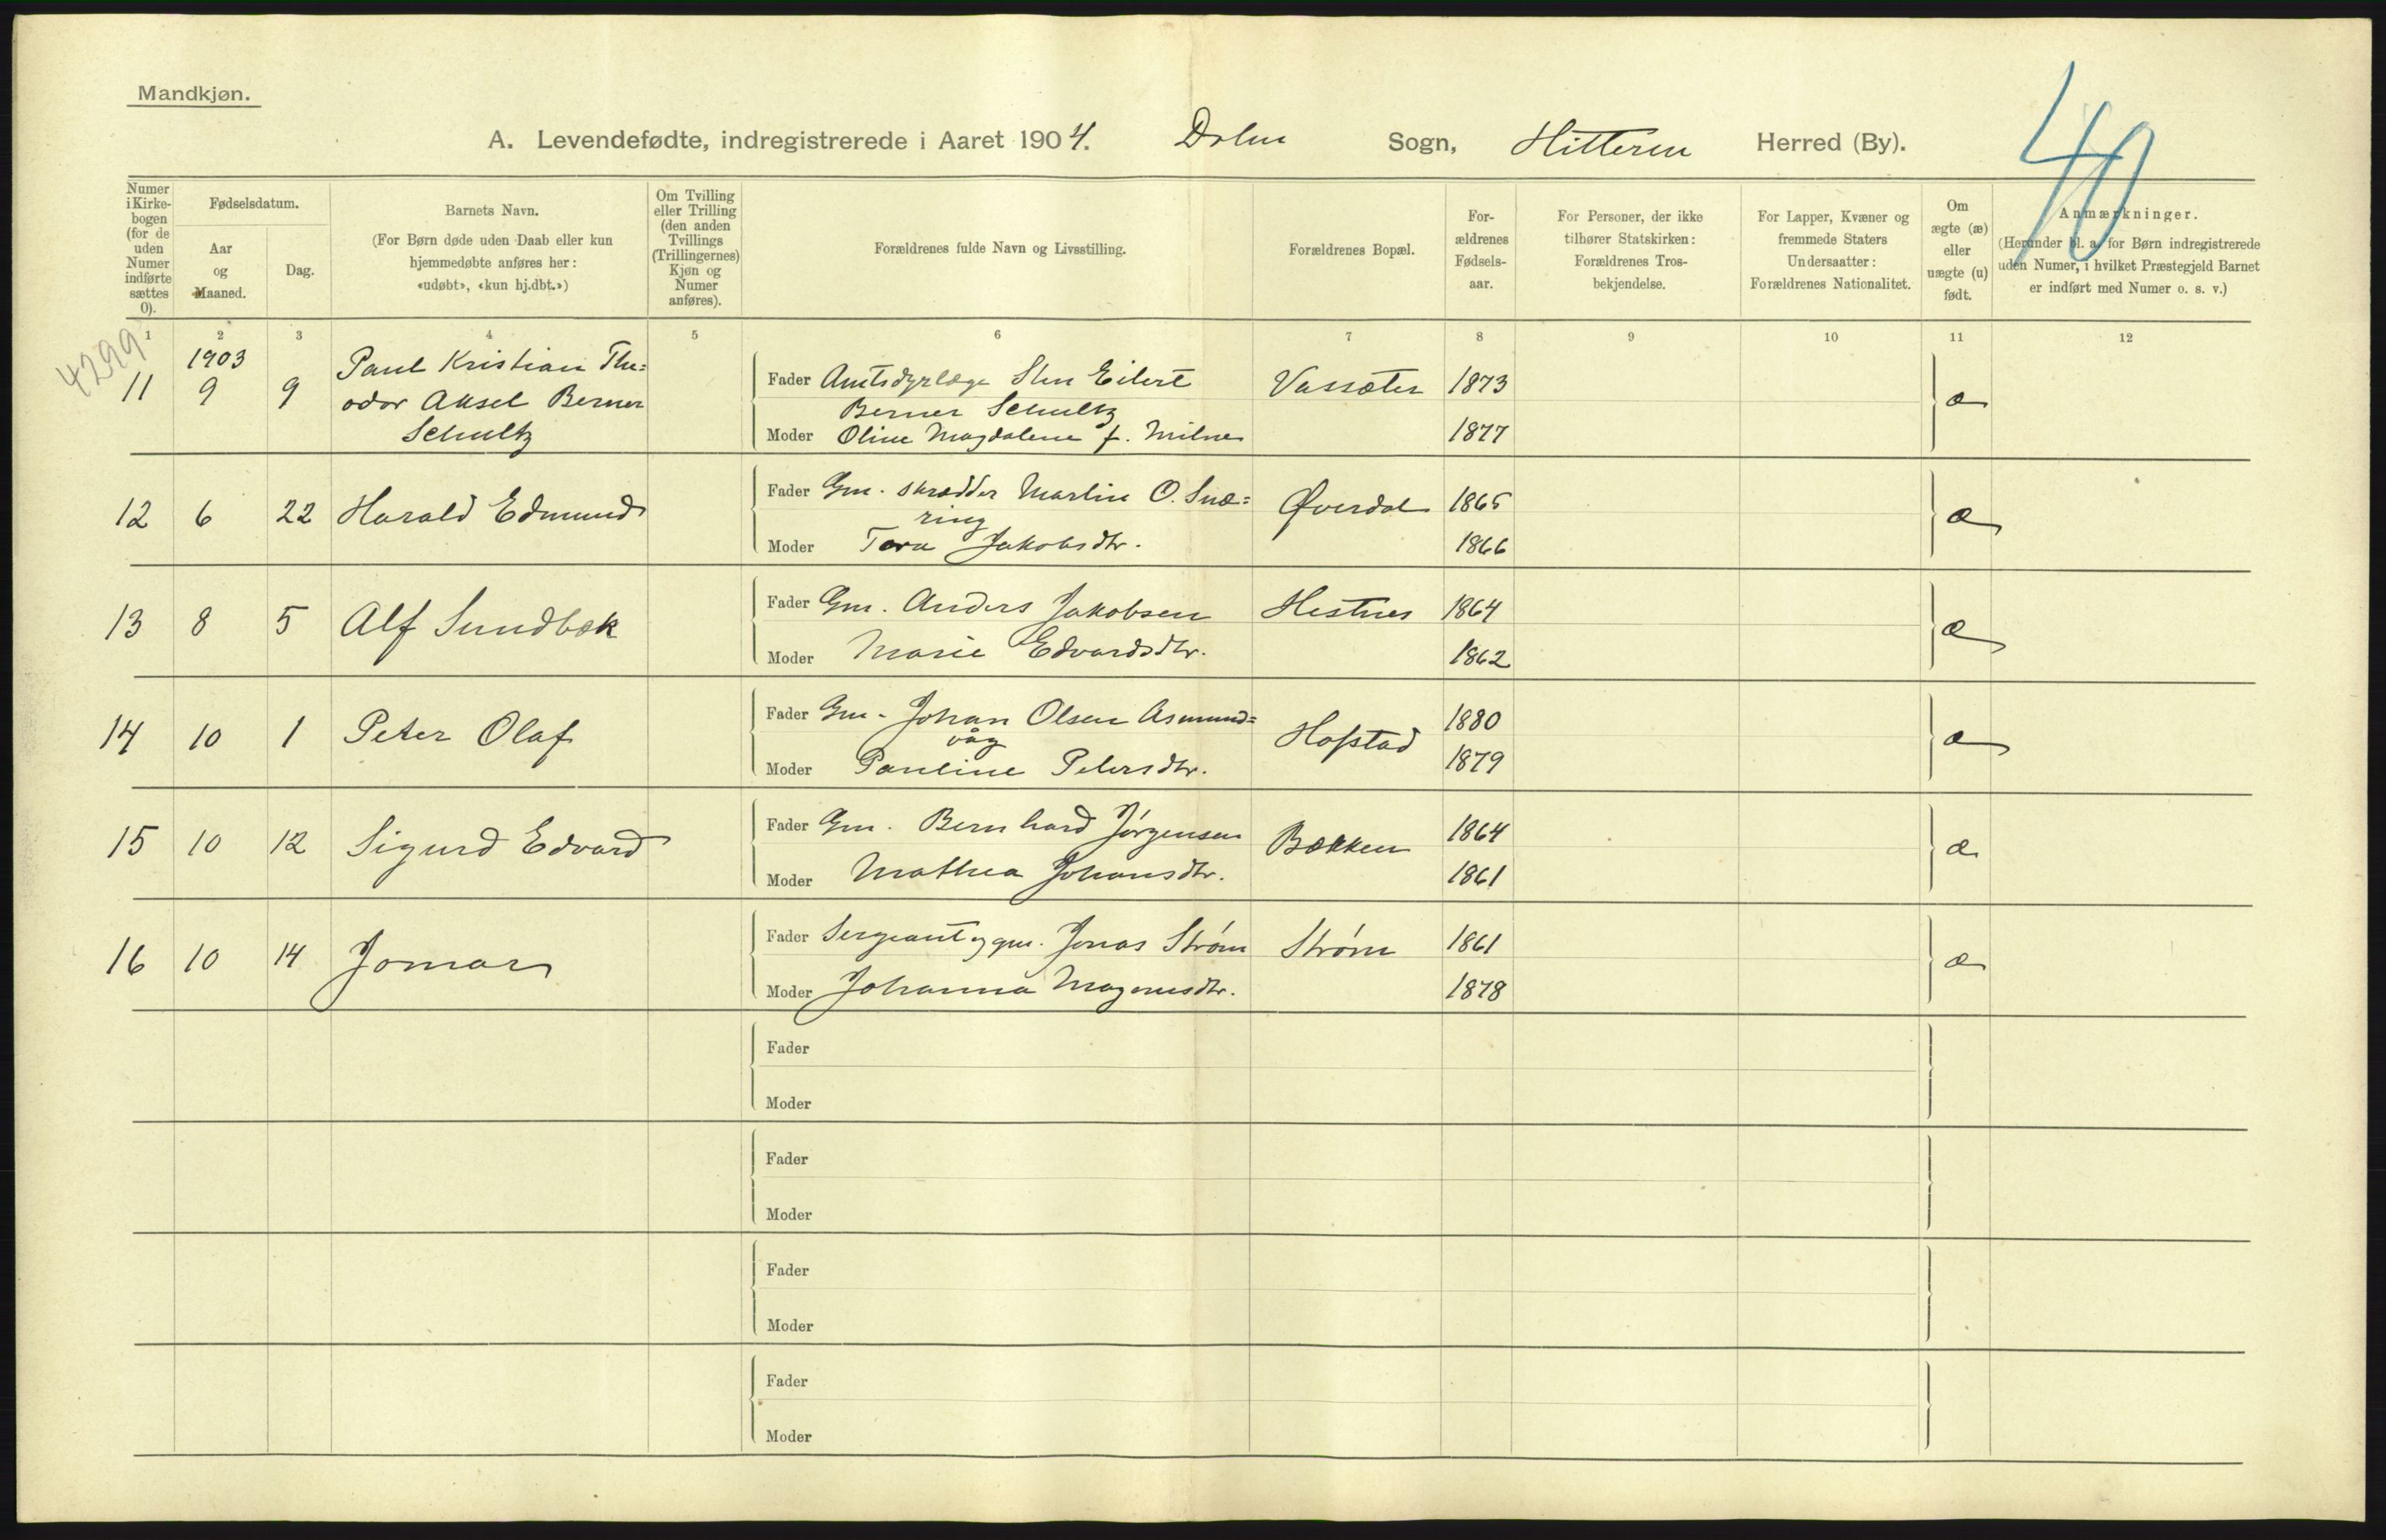 Mandkjøn.
A. Levendefødte, indregistrerede i Aaret 1904. Dolm Sogn, Hitteren Herred (By).
40
Numer i Kirke-bogen (for de uden Numer indførte sættes 0).
Fødselsdatum.
Aar og Maaned.
Dag.
Barnets Navn.
(For Børn døde uden Daab eller kun
hjemmedøbte anføres her:
«udøbt», «kun hj.dbt.»)
Om Tvilling
eller Trilling
(den anden
Tvillings
(Trillingernes)
Kjøn og
Numer
anføres).
Forældrenes fulde Navn og Livsstilling.
Forældrenes Bopæl.
For-
ældrenes
Fødsels-
aar.
For Personer, der ikke
tilhører Statskirken:
Forældrenes Tros-
bekjendelse.
For Lapper, Kvæner og
fremmede Staters
Undersaatter:
Forældrenes Nationalitet.
Om
ægte (æ)
eller
uægte (u)
født.
Anmærkninger.
(Herunder bl. a. for Børn indregistrerede
uden Numer, i hvilket Præstegjeld Barnet
er indført med Numer o. s. v.)
1 2 3 4 5 6 7 8 9 10 11 12
4299
1903
11 9 9 Paul Kristian The=
odor Aksel Berner
Schultz
Fader Amtsdyrlæge Sten Eilert Vassæter 1873 æ
Berner Schultz
Moder Oline Magdalene f. Milnes 1877
12 6 22 Harald Edmund
Fader Gm. skrædder Martin O. Snæ= Øverdal 1865 æ
ring
Moder Tora Jakobsdtr. 1866
13 8 5 Alf Sundbæk
Fader Gm. Anders Jakobsen Hestnes 1864 æ
Moder Marie Edvardsdtr. 1862
14 10 1 Peter Olaf
Fader Gm. Johan Olsen Asmund= Hofstad 1880 æ
våg
Moder Pauline Petersdtr. 1879
15 10 12 Sigurd Edvard
Fader Gm. Bernhard Jørgensen Bækken 1864 æ
Moder Mathea Johansdtr. 1861
16 10 14 Jomar
Fader Sergeant og gm. Jonas Strøm Strøm 1861 æ
Moder Johanna Magnusdtr. 1878
Fader
Moder
Fader
Moder
Fader
Moder
Fader
Moder